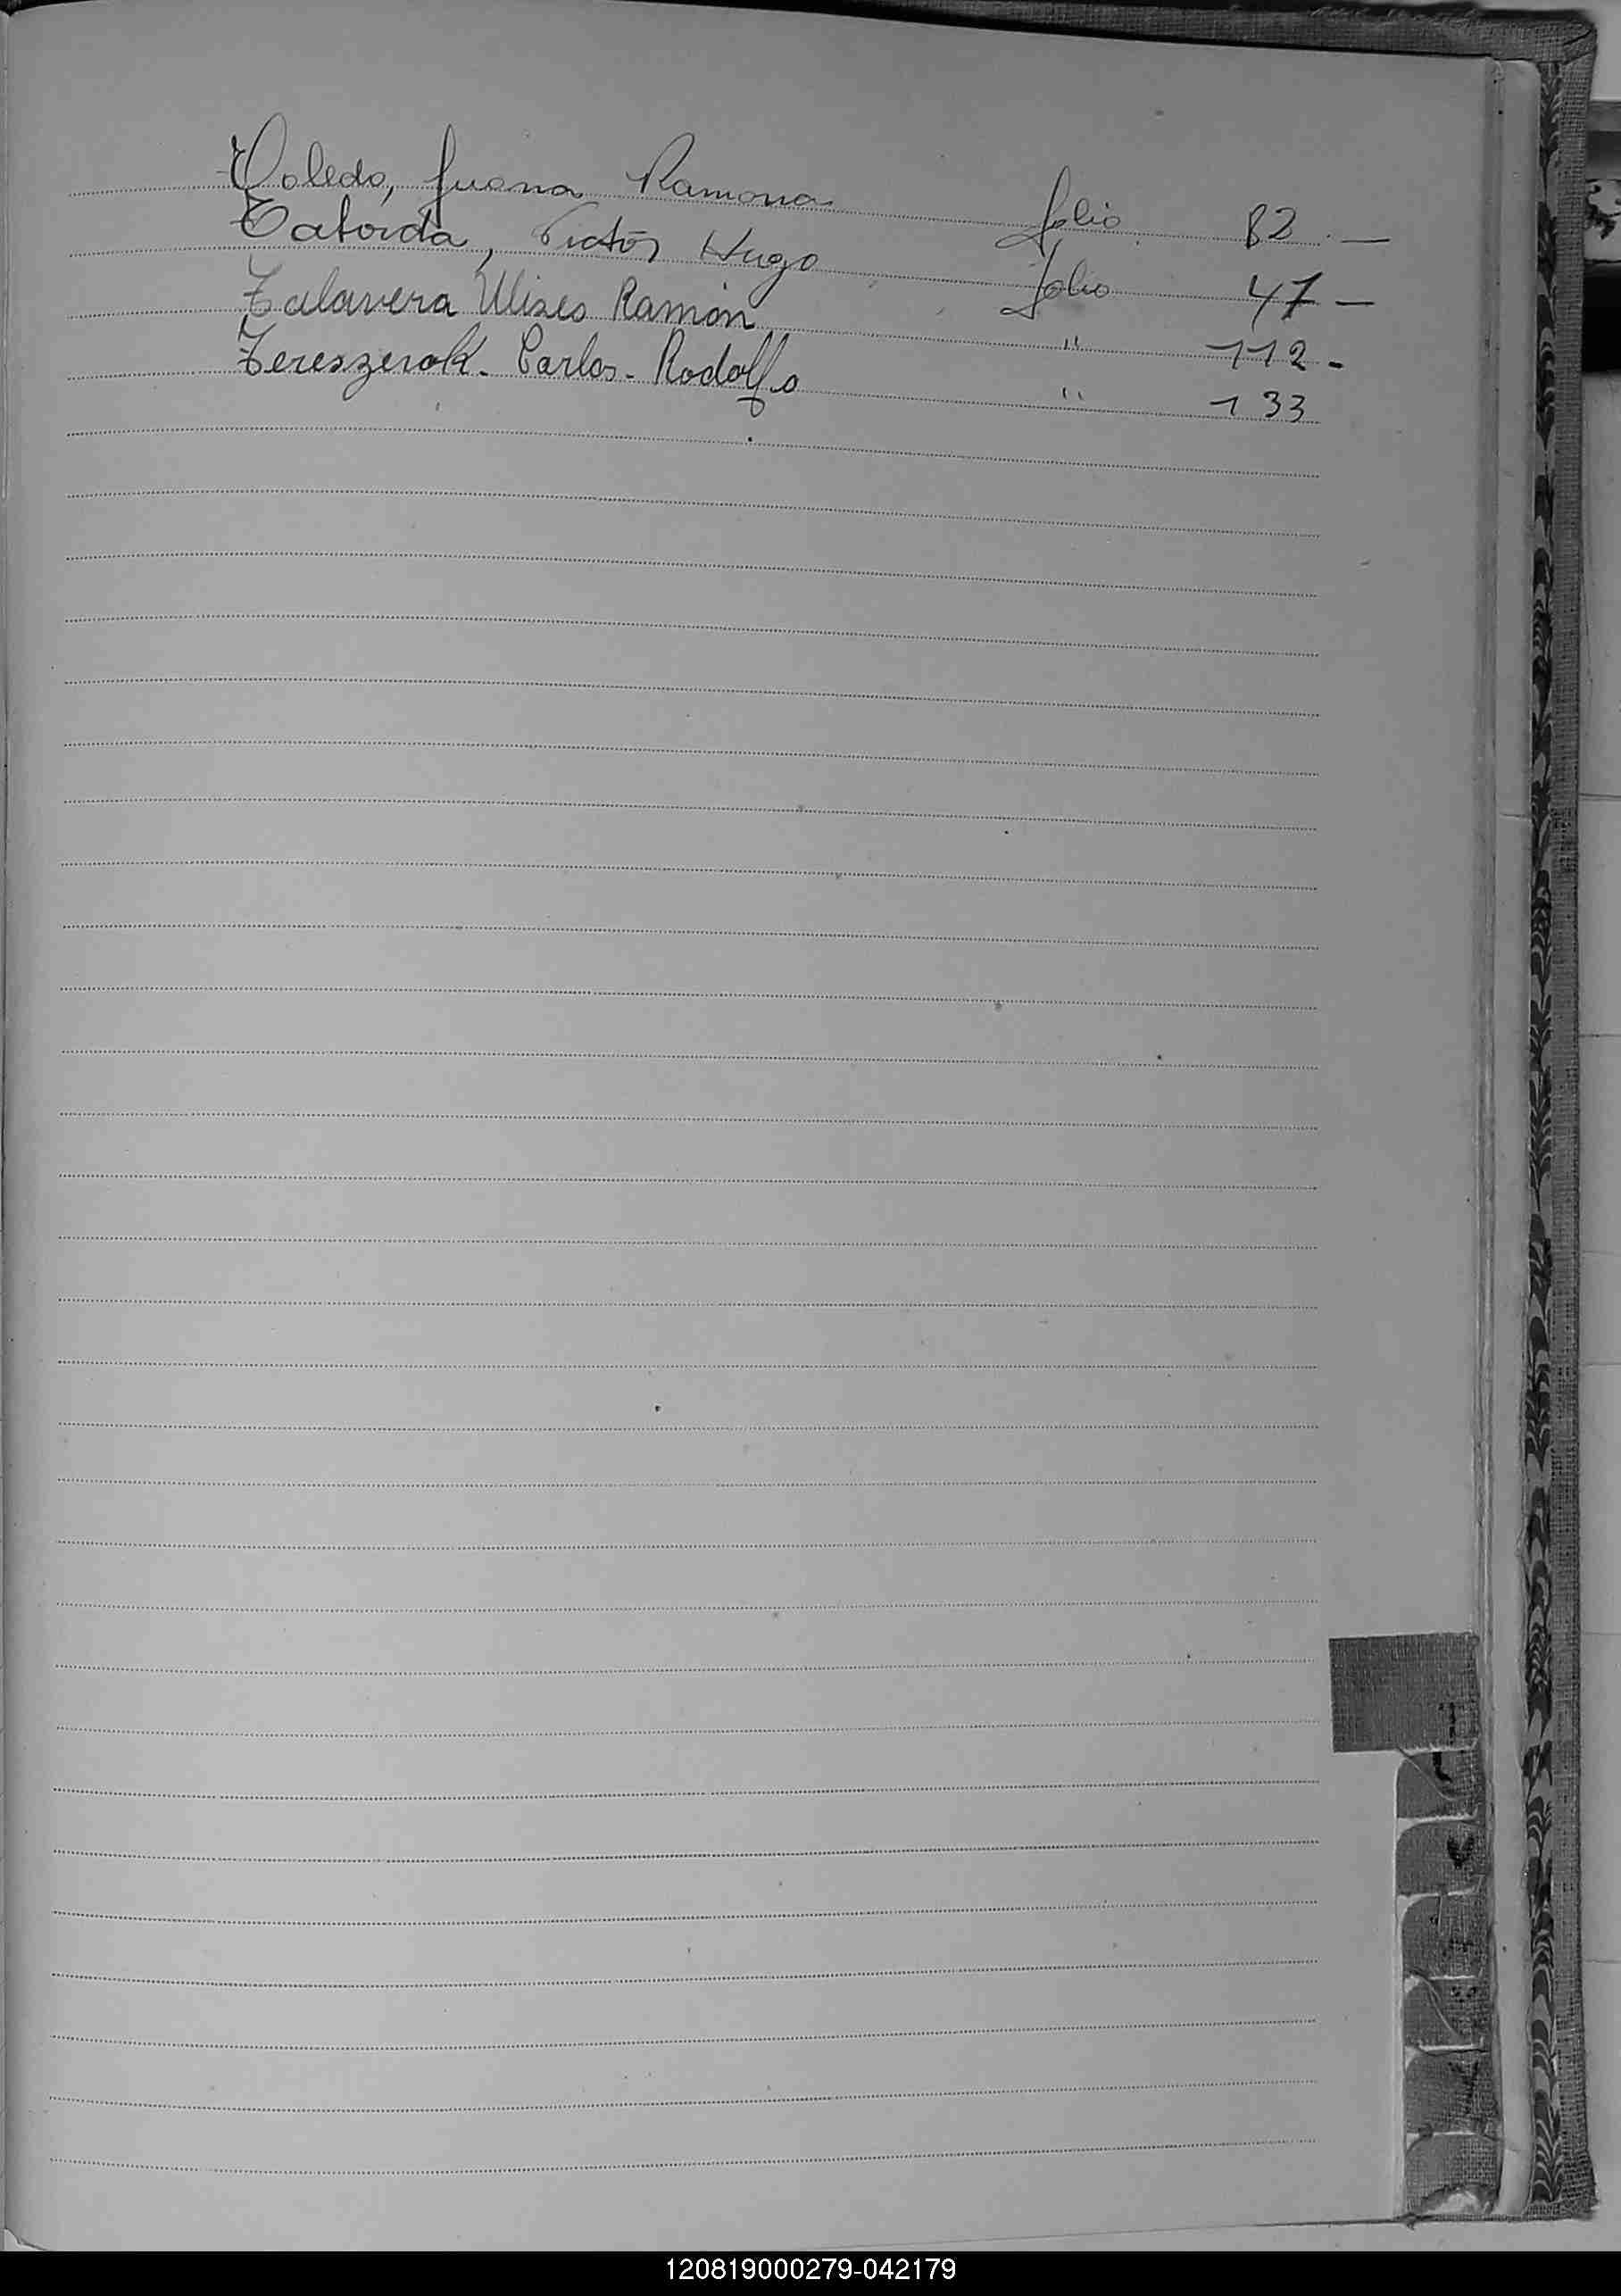 Toledo, Juana Ramona folio 82. —
Taborda, Victor Hugo folio 47 —
Talavera Ulises Ramón " 112 -
Tereszezuk - Carlos - Rodolfo " 133
T
120819000279-042179